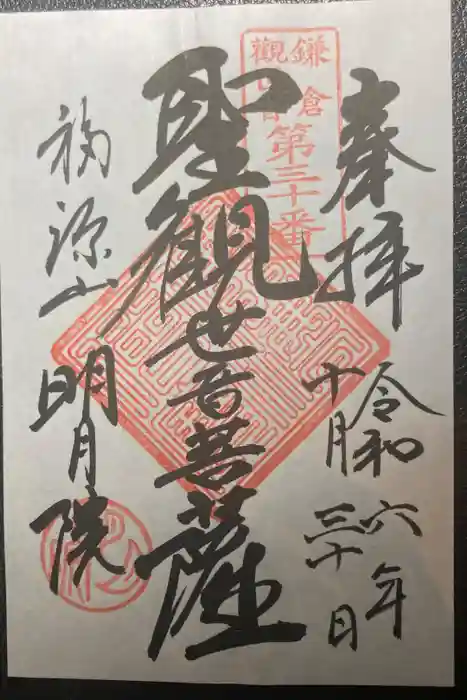 奉拝
令和六年
十月三十日
鎌倉
觀世音
第三十番
聖観世音菩薩
福源山
明月院